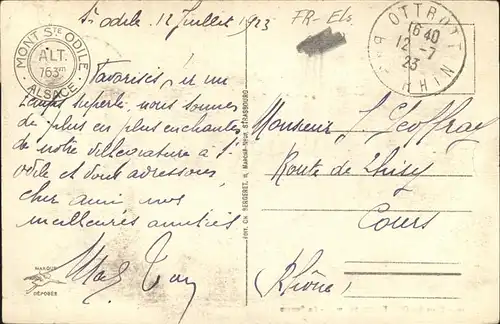 St odile, 12 Juillet 1923
FR-Els
MONT STE ODILE
ALT.
763m
ALSACE
OTTROTT
16 40
12-7
23
BAS-RHIN
Favorisés par un
temps superbe, nous sommes
de plus en plus enchantés
de notre villégiature à St
odile et vous adressons
cher ami nos
meilleures amitiés
Monsieur J Geoffray
Route de Thizy
Cours
(Rhône)
MARQUE
DÉPOSÉE
EDIT. CH. BERGERET, STRASBOURG